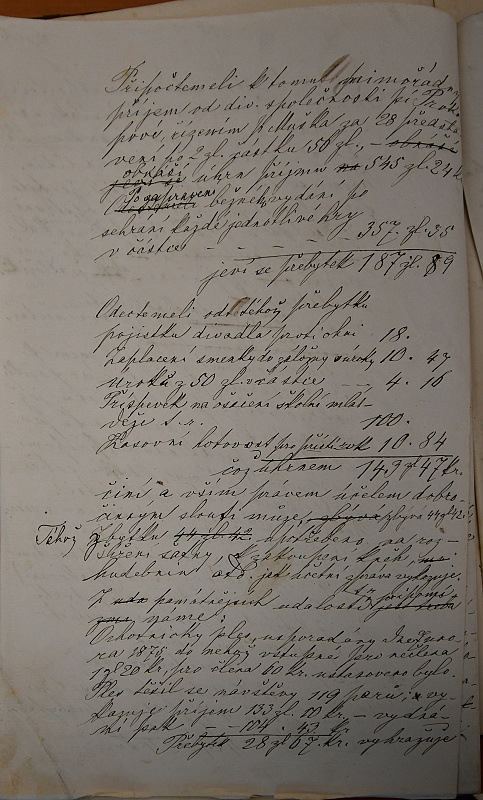 Připočtemeli k tomu mimořád
příjem od div. společnosti p. Prok
pové, řízením p. Muška za 28 předsta
vení po 2 zl. částku 56 zl., –
obnáší
úhrn příjmu 545 zl. 24 k
běžné vydání po
sehraní každé jednotlivé hry
v částce – – – 357. zl. 35
jeví se přebytek 187 zl. 89
Odečtemeli od téhož přebytku
pojistku divadla proti ohni 18.
Zaplacení směnky do záložny s úroky 10. 47
úroků z 50 zl. v částce – 4. 16
Příspěvek na ošacení školní mlá-
deže s. r. 100.
Kasovní hotovost pro příští rok 10. 84
což úhrnem 149 zl 47 kr.
činí a vším právem účelem dobro-
činným sloužit může, zbývá 44 zl 42.
Téhož zbytku 44 zl. 42 upotřebeno na roz-
šíření scény, zakoupení knih,
hudebnin atd. jak účetní zpráva vykazuje.
Z památnějších událostí připomí-
náme:
Ochotnický ples, uspořádaný dne Úno-
ra 1875 do něhož vstupné pro nečlena
1 zl 20 kr, pro člena 60 kr. ustanoveno bylo.
Ples těšil se návštěvy 119 párů, vy-
kazuje příjem 133 zl. 10 kr – vydá-
ní pak – 104 . 43
Přebytek 28 zl 67. kr. vyhražuje